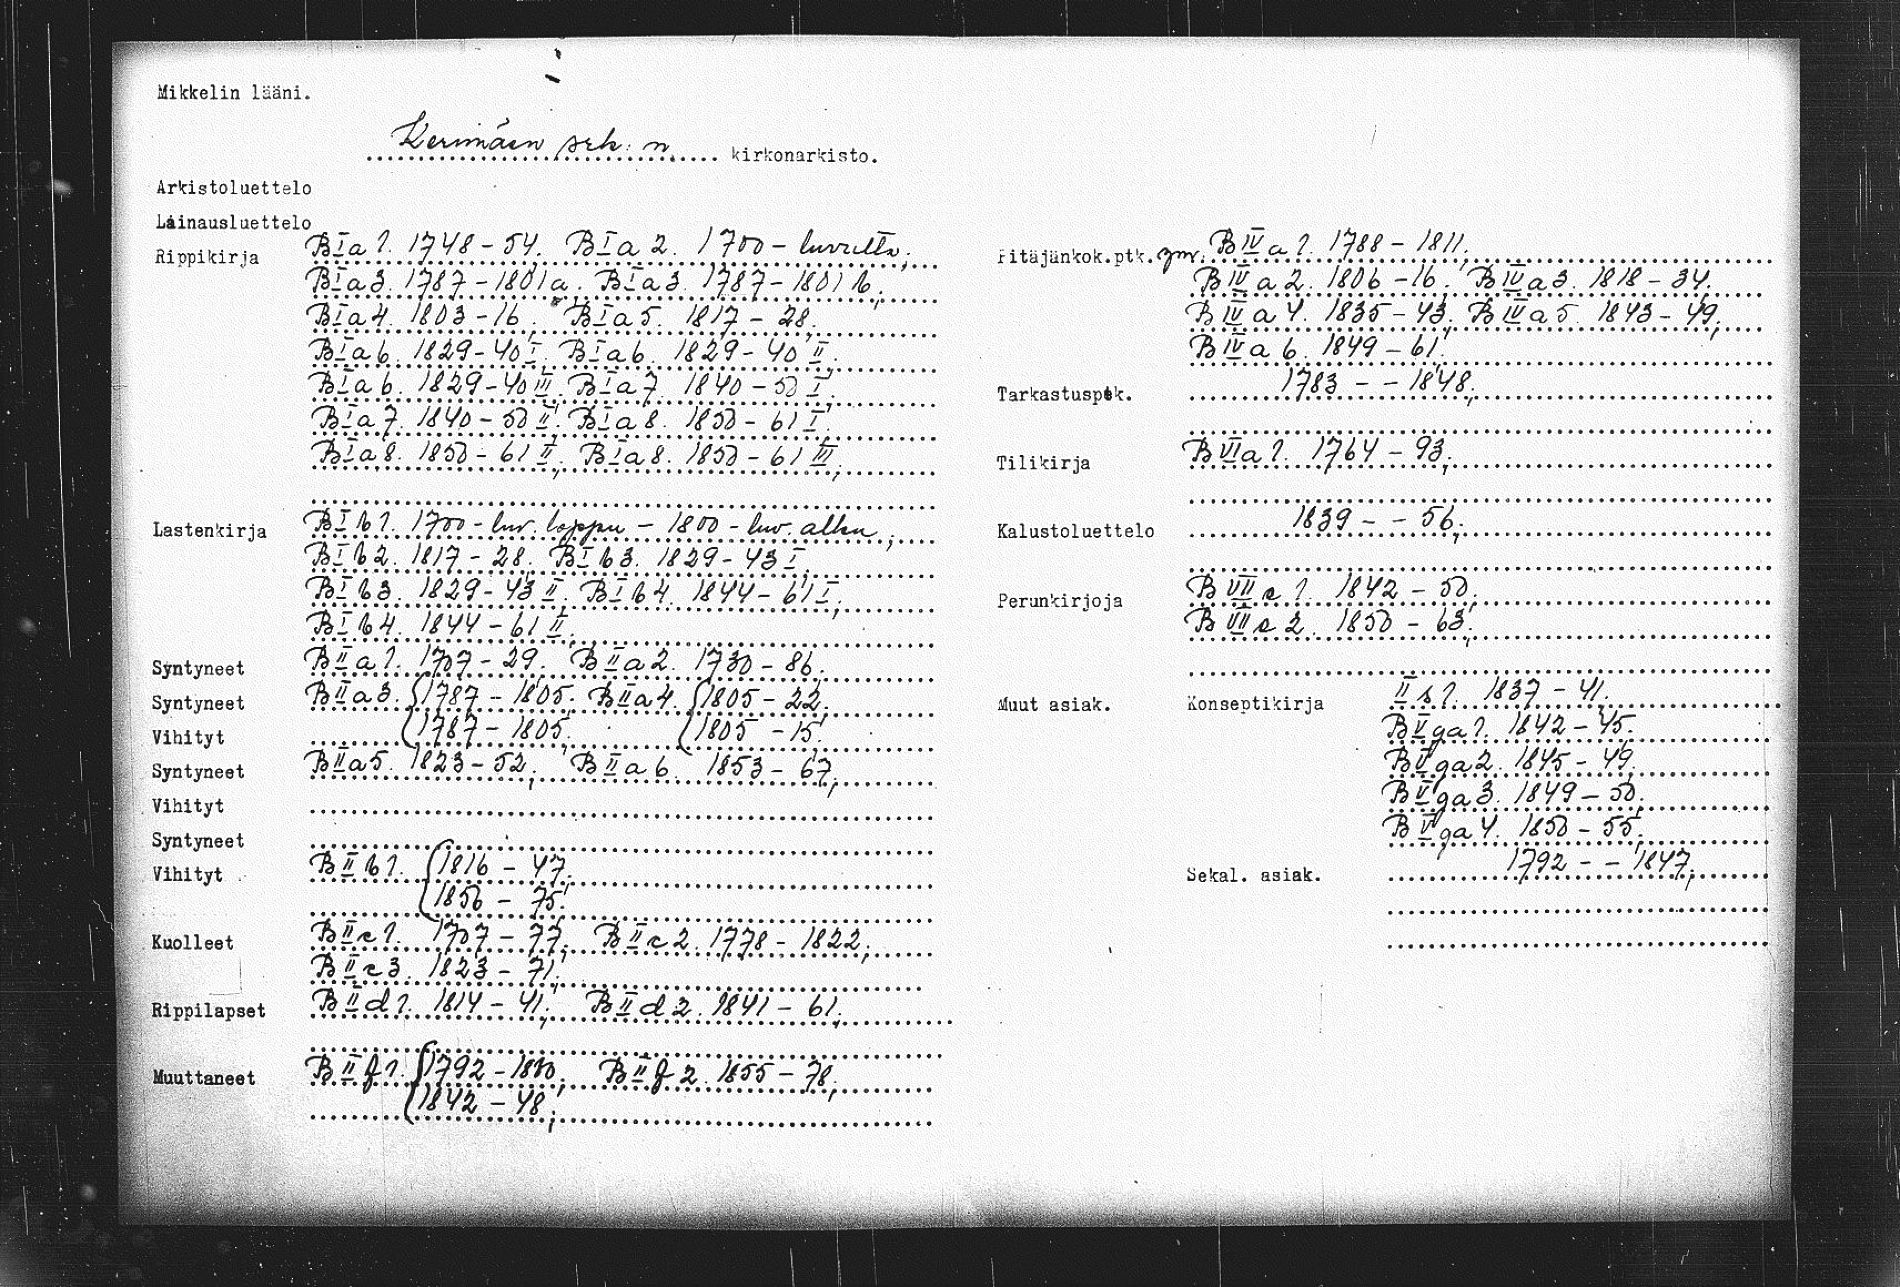 Mikkelin lääni.
Kerimäen srk:n kirkonarkisto.
Arkistoluettelo
Lainausluettelo
Rippikirja B I a 1. 1748 - 54. B I a 2. 1700 - luvulta;
B I a 3. 1787 - 1801 a. B I a 3. 1787 - 1801 b;
B I a 4. 1803 - 16; B I a 5. 1817 - 28;
B I a 6. 1829 - 40 I; B I a 6. 1829 - 40 II;
B I a 6. 1829 - 40 III; B I a 7. 1840 - 50 I;
B I a 7. 1840 - 50 II; B I a 8. 1850 - 61 I;
B I a 8. 1850 - 61 II; B I a 8. 1850 - 61 III;
Lastenkirja B I b 1. 1700 - luv. loppu - 1800 - luv. alku;
B I b 2. 1817 - 28. B I b 3. 1829 - 43 I;
B I b 3. 1829 - 43 II; B I b 4. 1844 - 61 I;
B I b 4. 1844 - 61 II;
Syntyneet B II a 1. 1707 - 29. B II a 2. 1730 - 86;
Syntyneet B II a 3. 1787 - 1805. B II a 4. 1805 - 22;
Vihityt 1787 - 1805; 1805 - 15;
Syntyneet B II a 5. 1823 - 52; B II a 6. 1853 - 67;
Vihityt
Syntyneet
Vihityt B II b 1. 1816 - 47;
1856 - 75;
Kuolleet B II c 1. 1707 - 77; B II c 2. 1778 - 1822;
B II c 3. 1823 - 71;
Rippilapset B II d 1. 1814 - 41; B II d 2. 1841 - 61;
Muuttaneet B II f 1. 1792 - 1800; B II f 2. 1855 - 78;
1842 - 48;
Pitäjänkok.ptk. ym. B IV a 1. 1788 - 1811;
B IV a 2. 1806 - 16; B IV a 3. 1818 - 34.
B IV a 4. 1835 - 43; B IV a 5. 1843 - 49;
B IV a 6. 1849 - 61;
Tarkastusptk. 1783 - - 1848;
Tilikirja B VI a 1. 1764 - 93;
Kalustoluettelo 1839 - - 56;
Perunkirjoja B VII c 1. 1842 - 50;
B VII c 2. 1850 - 63;
Muut asiak. Konseptikirja II s 1. 1837 - 41;
B V ga 1. 1842 - 45.
B V ga 2. 1845 - 49;
B V ga 3. 1849 - 50;
B V ga 4. 1850 - 55;
Sekal. asiak. 1792 - - 1847;